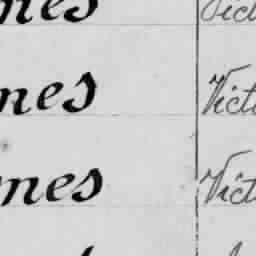 nes Vict
nes Victo
nes Victo